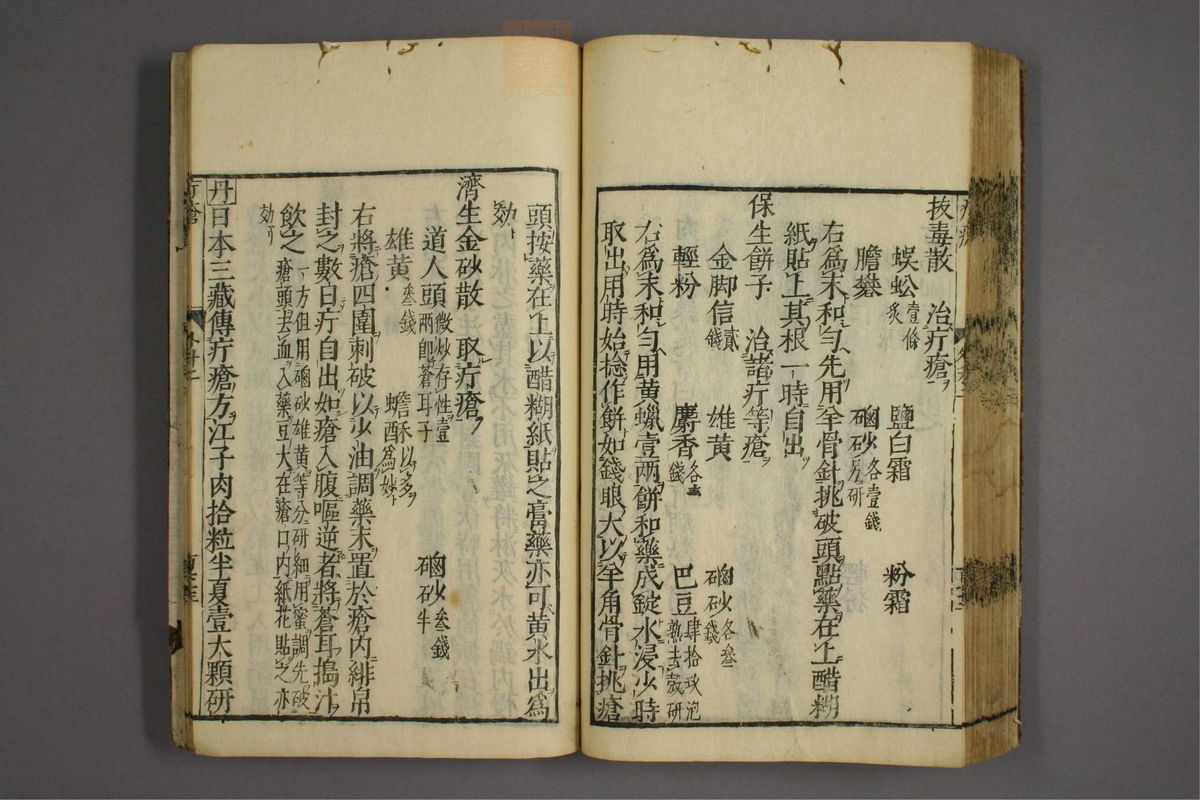 拔毒散　治疔瘡ヲ
蜈蚣壹條炙　鹽白霜　粉霜
膽礬　硇砂各壹錢另研
右爲末和勻先用羊骨針挑破頭點藥在上醋糊
紙貼上其根一時自出
保生餅子　治諸疔等瘡ヲ
金脚信貳錢　雄黄　硇砂各叁錢
輕粉　麝香各壹錢　巴豆肆拾玖泡熟去殼研
右爲末和勻用黄蠟壹兩餅和藥成錠水浸少時
取出用時始捻作餅如錢眼大以羊角骨針挑瘡
頭按藥在上以醋糊紙貼之膏藥亦可黄水出爲
効
濟生金砂散　取疔瘡ヲ
道人頭微炒存性壹兩即蒼耳子　硇砂叁錢半
雄黄叁錢　蟾酥以多爲妙
右將瘡四圍刺破以少油調藥末置於瘡内緋帛
封之數日疔自出如瘡入腹嘔逆者將蒼耳搗汁
飲之一方但用硇砂雄黄等分研細用蜜調先破瘡頭去血入藥豆大在瘡口内紙花貼之亦効
丹日本三藏傳疔瘡方江子肉拾粒半夏壹大顆研